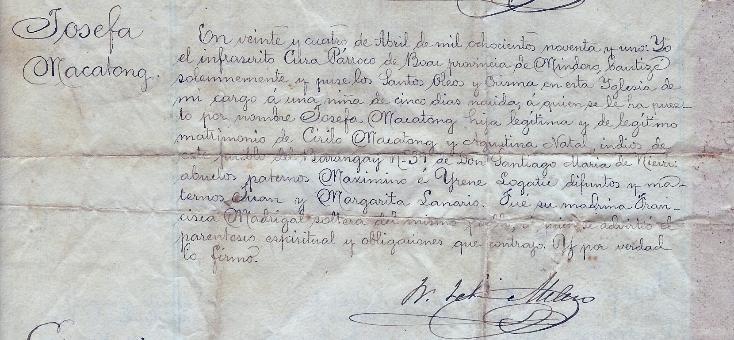 Josefa
Macatong.
En veinte y cuatro de Abril de mil ochocientos noventa y uno: Yo
el infrascrito Cura Párroco de Boac provincia de Mindoro, bauticé
solemnemente y puse los Santos Oleo y Crisma en esta Yglesia de
mi cargo á una niña de cinco dias nacida, a quien se le ha pues-
to por nombre Josefa Macatong hija legítima y de legítimo
matrimonio de Cirilo Macatong y Agustina Natal, indios de
este pueblo del Barangay N-37 de Don Santiago Maria de
abuelos paternos Maximino é Yrene Logatic difuntos y ma-
ternos Juan y Margarita Lanario. Fue su madrina Fran-
cisca Madrigal soltera del mismo pueblo, á quien se advirtió el
parentesco espiritual y obligaciones que contrajo. Y por verdad
lo firmo.